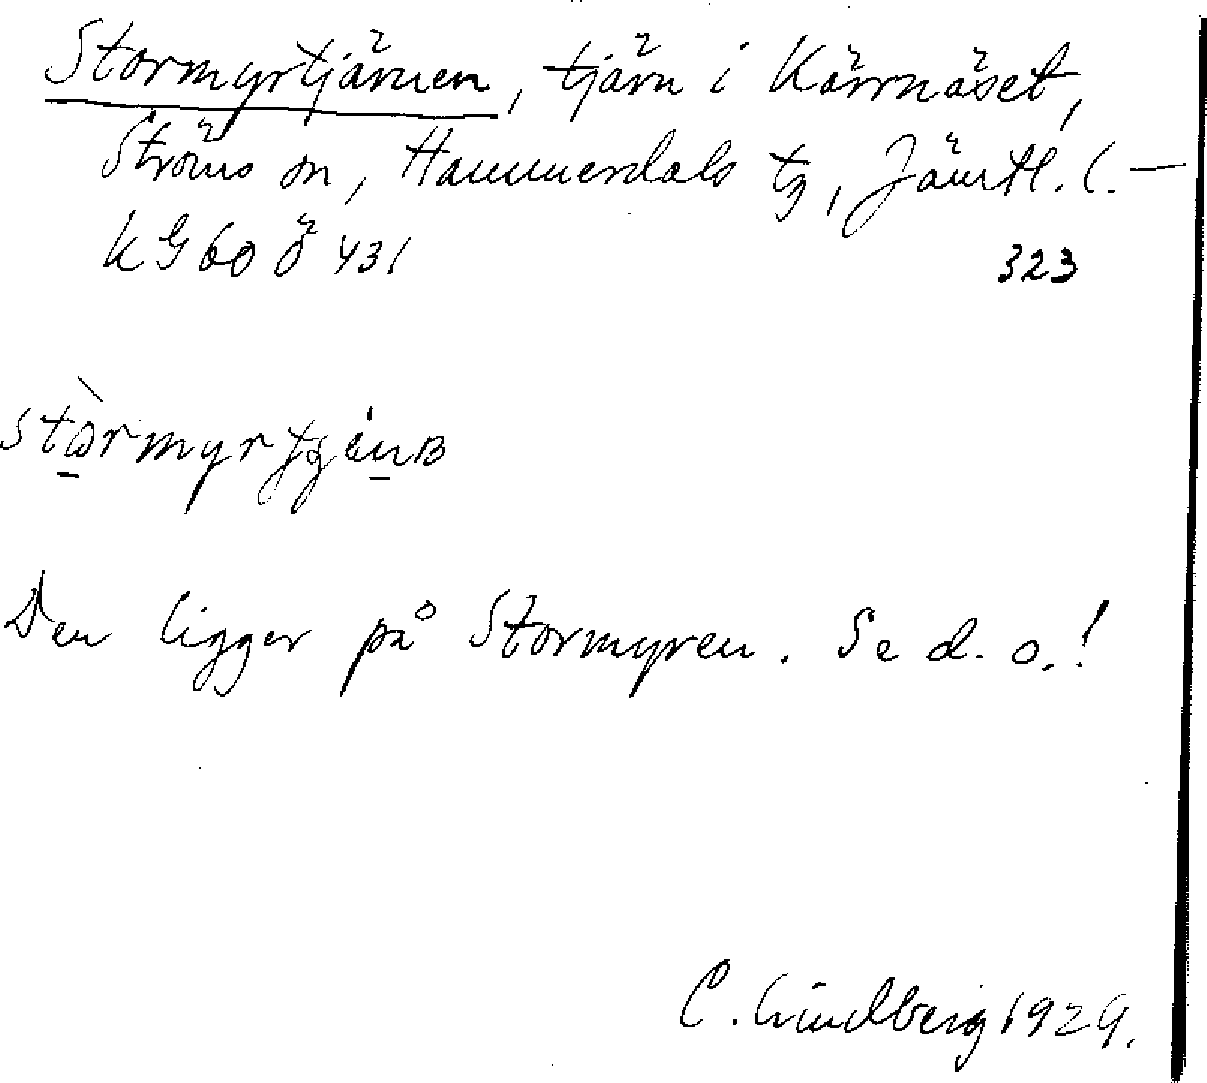 Stormyrtjärnen, tjärn i Kärrnäset,
Ströms sn, Hammerdals tg, Jämtl. l. —
kG 60 Ö 431 323
Den ligger på Stormyren. Se d. o.!
C. Lindberg 1929.